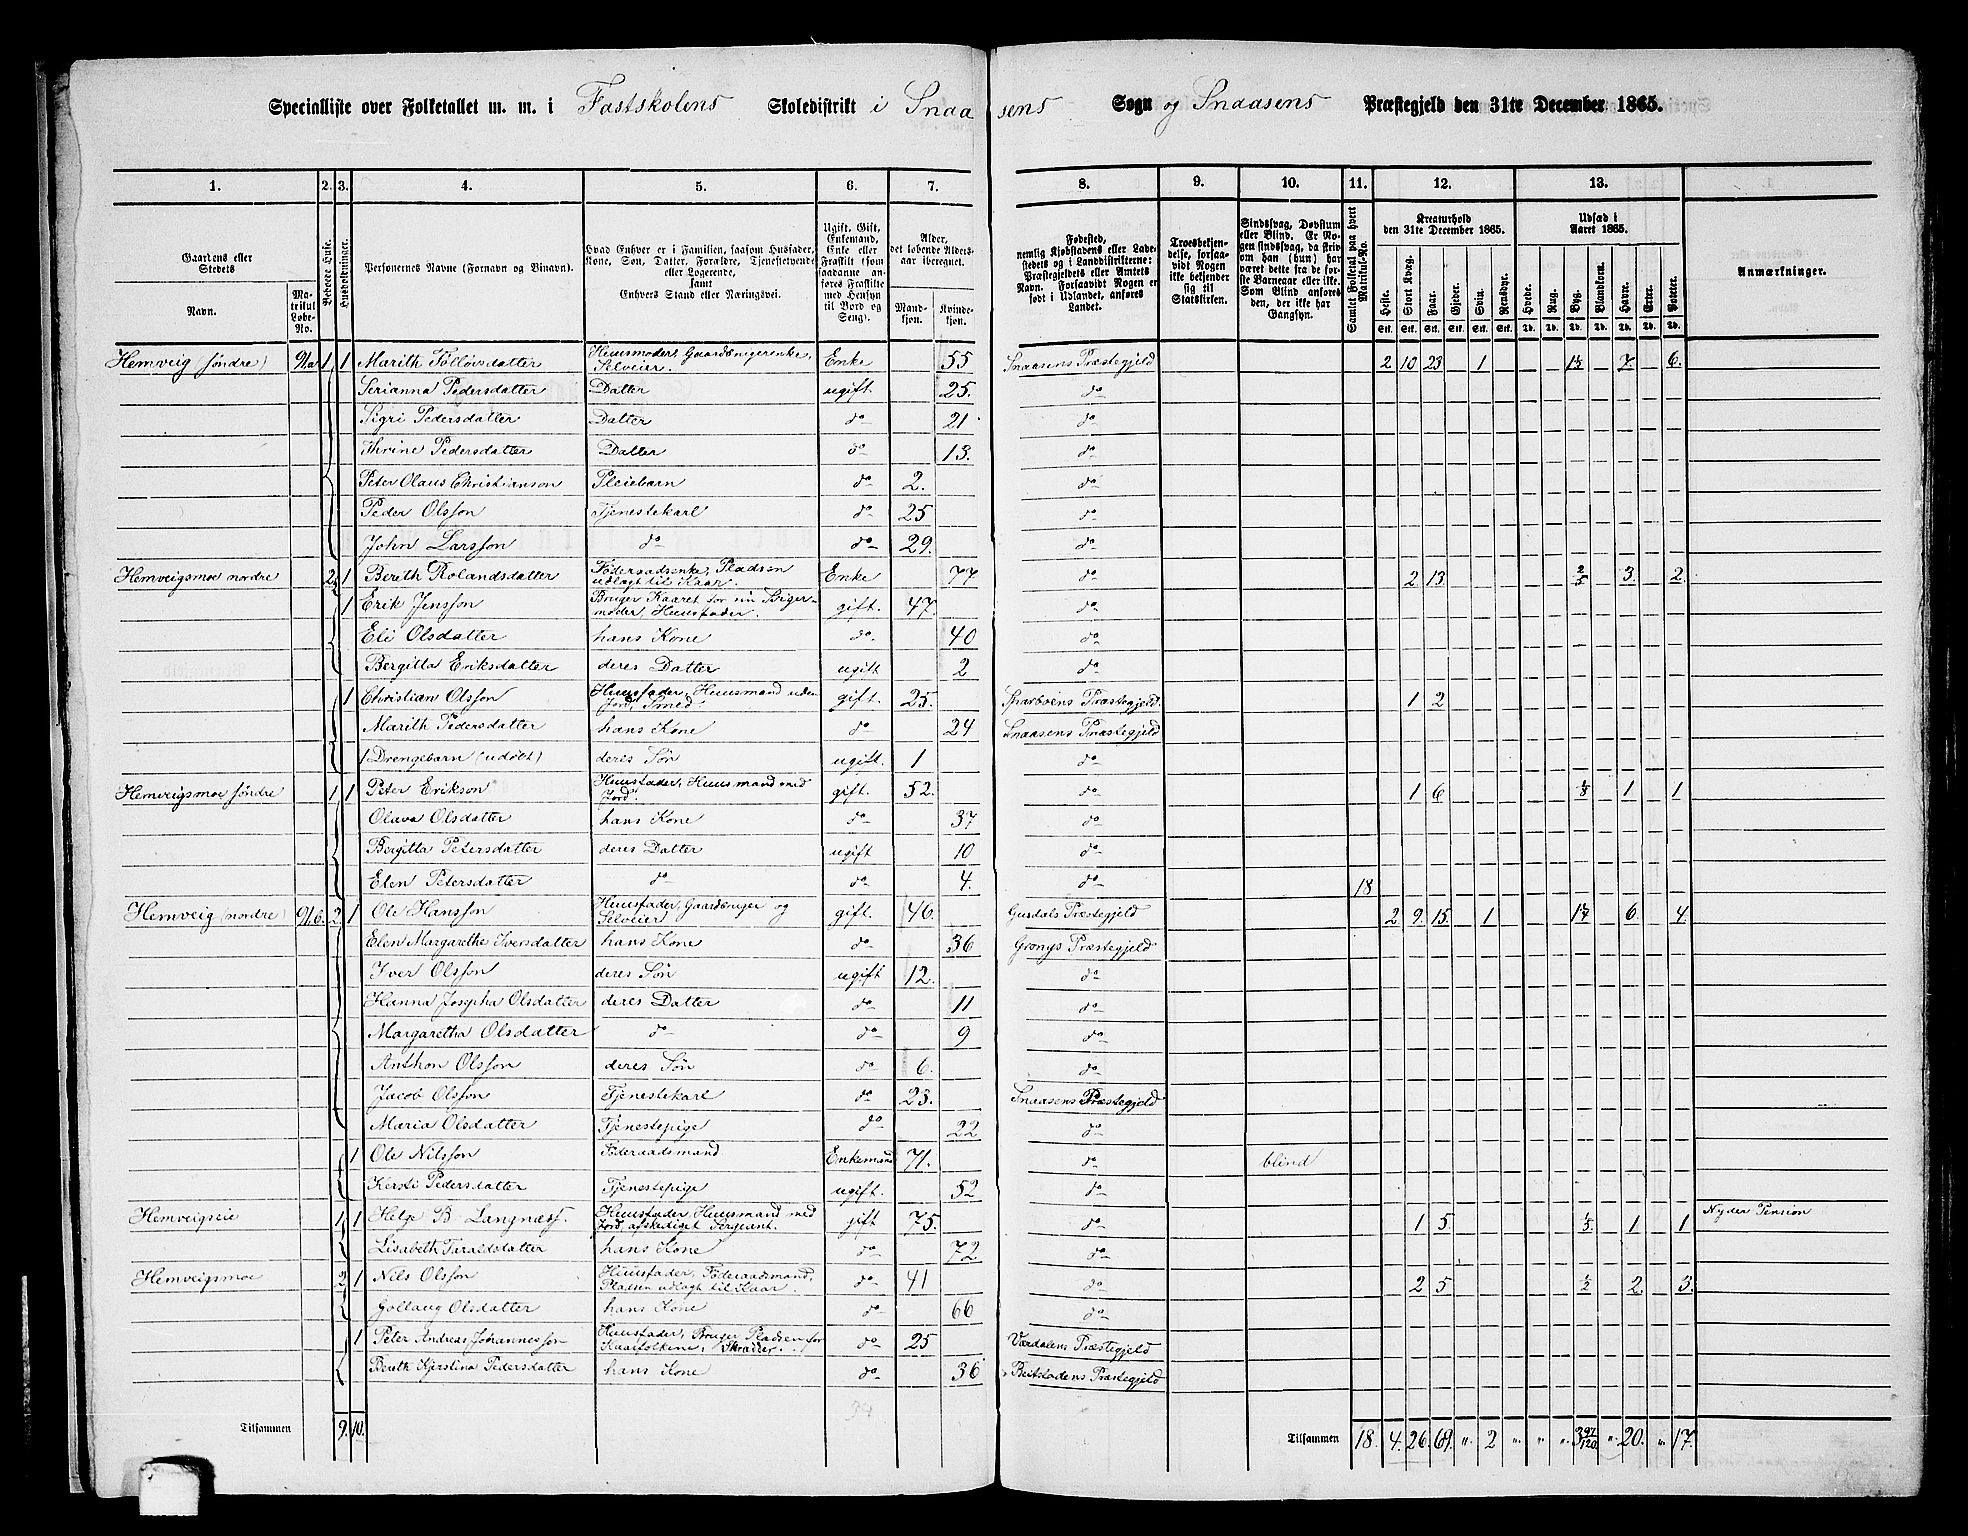 Specialliste over Folketallet m. m. i Fastskolens Skoledistrikt i Snaasens Sogn og Snaasens Præstegjeld den 31te December 1865.
1. 2. 3. 4. 5. 6. 7. 8. 9. 10. 11. 12. 13.
Gaardens eller Stedets
Navn.
Matrikul Løbe-No.
Beboede Huse.
Huusholdninger.
Personernes Navne (Fornavn og Binavn).
Hvad Enhver er i Familien, saasom Husfader, Kone, Søn, Datter, Forældre, Tjenestetyende eller Logerende, samt Enhvers Stand eller Næringsvei.
Ugift, Gift, Enkemand, Enke eller Fraskilt (som saadanne anføres Fraskilte med Hensyn til Bord og Seng).
Alder, det løbende Aldersaar iberegnet.
Mandkjøn.
Kvindekjøn.
Fødested, nemlig Kjøbstadens eller Ladestedets og i Landdistrikterne: Præstegjeldets eller Amtets Navn. Forsaavidt Nogen er født i Udlandet, anføres Landet.
Troesbekjendelse, forsaavidt Nogen ikke bekjender sig til Statskirken.
Sindssvag, Døvstum eller Blind. Er Nogen sindssvag, da skrives om han (hun) har været dette fra de første Barneaar eller ikke. Som Blind anføres den, der ikke har Gangsyn.
Samlet Folketal paa hvert Matrikul-No.
Kreaturhold den 31te December 1865.
Heste. Stort Kvæg. Faar. Gjeder. Sviin. Rensdyr.
Udsæd i Aaret 1865.
Hvede. Rug. Byg. Blandkorn. Havre. Erter. Poteter.
Anmærkninger.
Hemveig (søndre) 91a 1 1 Marith Tolløvsdatter Huusmoder, Gaardbrugerenke, Selveier. Enke 55 Snaasens Præstegjeld 2 10 23 1 7. 6.
Serianna Pedersdatter Datter ugift 25. do
Sigri Pedersdatter Datter do 21 do
Thrine Pedersdatter Datter do 13. do
Peter Olaus Christianson Pleiebarn do 2. do
Peder Olsson Tjenestekarl do 25 do
John Larsson do do 29. do
Hemveigsmoe nordre 2 1 Bereth Rolandsdatter Føderaadsenke, Pladsen udlagt til Kaar. Enke 77 do 2 13. 3. 2.
1 Erik Jensson Bruger Kaaret for sin Svigermoder, Huusfader. gift. 47. do
Eli Olsdatter hans Kone do 40 do
Bergitta Eriksdatter deres Datter ugift 2 do
1 Christian Olsson Huusfader, Huusmand uden Jord, Smed gift. 25. Sparboens Præstegjeld. 1 2
Marith Pedersdatter hans Kone do 24 Snaasens Præstegjeld
1 Drengebarn (udøbt) deres Søn ugift. 1 do
Hemveigsmoe søndre 1 1 Peter Erikson Huusfader, Huusmand med Jord. gift. 52. do 1 6 1/3 1 1
Olava Olsdatter hans Kone do 37 do
Bergitta Petersdatter deres Datter ugift 10 do
Elen Petersdatter do do 4. do 18
Hemveig (nordre) 91b. 2. 1 Ole Hansson Huusfader, Gaardbruger og Selveier gift. 46. Gusdals Præstegjeld 2 9. 15. 1 6. 4.
Elen Margarethe Iversdatter hans Kone 36 Grongs Præstegjeld
Iver Olsson deres Søn ugift 12. do
Hanna Josepha Olsdatter deres Datter do 11 do
Margaretha Olsdatter do do 9 do
Anthon Olsson deres Søn do 6. do
Jacob Olsson Tjenestekarl do 23. Snaasens Præstegjeld
Maria Olsdatter Tjenestepige do 22 do
1 Ole Nilsson Føderaadsmand Enkemand 71. do blind
Kersti Pedersdatter Tjenestepige ugift. 52 do
Hemveigseie 1 1 Helge B. Langnæss. Huusfader, Huusmand med Jord, afskediget Sergeant. gift 75. do 1 5. 1/3 1 1 Nyder Pension
Lisabeth Taraldsdatter hans Kone do 72 do
Hemveigsmoe 2 1 Nils Olsson Huusfader, Føderaadsmand, Pladsen udlagt til Kaar. do 41 do 2 5 1/2 2. 3.
Gollaug Olsdatter hans Kone do 66 do
1 Peter Andreas Johannesson Huusfader, Bruger Pladsen for Kaarfolkene, Skrædder. do 25 Værdalens Præstegjeld
Bereth Kjerstina Pedersdatter hans Kone do 36 Beitstadens Præstegjeld
34
Tilsammen 9. 10. Tilsammen 18. 4. 26. 69. " 2 " " " 3 97/120 " 20. " 17.